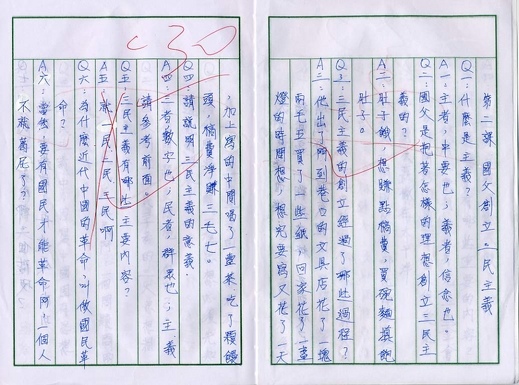 第二課 國父創立三民主義
Q一:什麼是主義?
A一:主者,中要也;義者,信念也。
Q二:國父是抱著怎樣的理想創立三民主
義的?
A二:肚子餓,想賺點稿費,買碗麵填飽
肚子。
Q三:三民主義的創立經過了哪些過程?
A三:他出了門到巷口的文具店花了一塊
兩毛五買了一些紙,回家花了一盞
燈的時間想,想完要寫又花了一天
,加上寫的中間喝了一壺茶吃了顆饅
頭,稿費淨賺三毛七。
Q四:請說明三民主義的意義。
A四:三者數字也;民者,群眾也;主義
請參考前面。
Q五:三民主義有哪些主要內容?
A五:就一民二民三民啊
Q六:為什麼近代中國的革命,叫做國民革
命?
A六:當然要有國民才能革命阿!一個人
不就
30